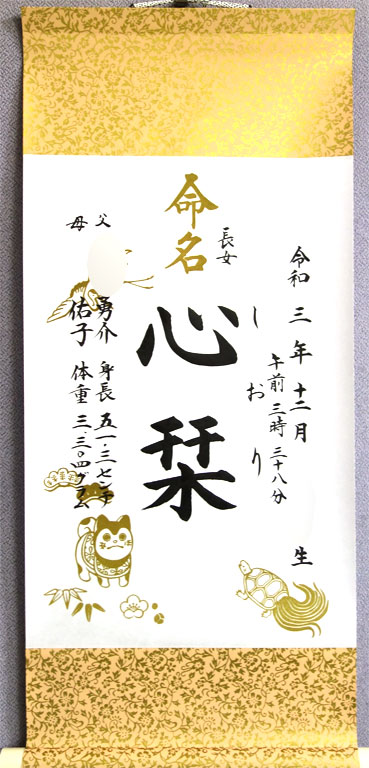 令和三年十二月 生
午前三時三十八分
しおり
長女
命名
心栞
父 勇介
母 佑子
身長 五一.三センチ
体重 三.三〇四グラム